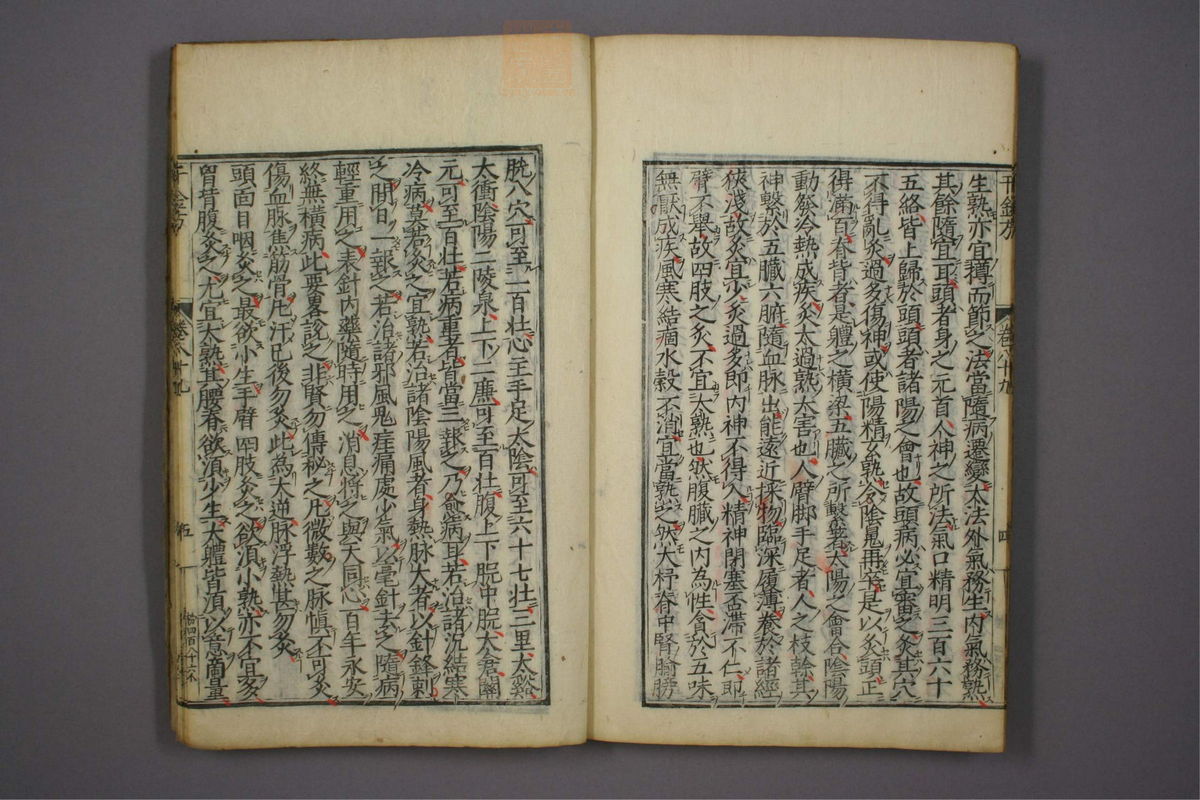 生熟亦宜撙而節之法當隨病遷變大法外氣務生內氣務熟
其餘隨宜耳頭者身之元首人神之所法氣口精明三百六十
五絡皆上歸於頭頭者諸陽之會也故頭病必宜審之灸其穴
不得亂灸過多傷神或使陽精玄熟令陰鬼再卒是以灸頭正
得滿百脊背者是軀之橫梁五臟之所繫著太陽之會合陰陽
動發冷熱成疾灸太過熟大害也人臂脚手足者人之枝幹其
神繫於五臟六腑隨血脉出能遠近採物臨深履薄養於諸經
狹淺故灸宜少灸過多即內神不得入精神閉塞否滯不仁即
臂不舉故四肢之灸不宜太熟也然腹臓之內為性貪於五味
無厭成疾風寒結痼水穀不消宜當熟之然大杼脊中腎腧膀
千金方 卷八十九 四
胱八穴可至二百壯心主手足太陰可至六十七壯三里太谿
太衝陰陽二陵泉上下二廉可至百壯腹上下脘中脘太倉關
元可至一百壯若病重者皆當三報之乃愈病耳若治諸沉結寒
冷病莫若灸之宜熟若治諸陰陽風者身熱脉大者以針鋒刺
之間日一報之若治諸邪風鬼疰痛處少氣以毫針去之隨病
輕重用之表針內藥隨時用之消息將之與天同心百年永安
終無橫病此要畧說之非賢勿傳秘之凡微數之脉慎不可灸
傷血脉焦筋骨凡汗已後勿灸此為大逆脉浮熱甚勿灸
頭面目咽灸之最欲小生手臂四肢灸之欲須小熟亦不宜多
胷背腹灸之尤宜大熟其腰脊欲須少生大軆皆須以意商量
千金方 卷八十九 五